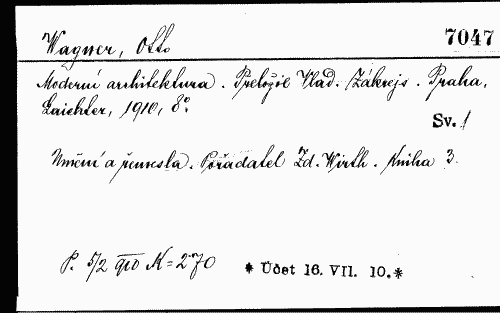 7047
Wagner, Otto
Moderní architektura. Přeložil Vlad. Zákrejs. Praha,
Laichter, 1910, 8°.
Sv. 1
Umění a řemesla. Pořadatel Zd. Wirth. Kniha 3.
P. 5/2 910 K = 2·70
* Účet 16. VII. 10.*